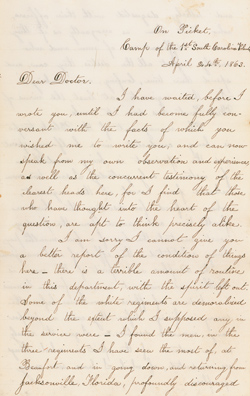 On Picket,
Camp of the 1st South Carolina Vols
April 24th, 1863.
Dear Doctor.
I have waited, before I
wrote you, until I had become fully con-
versant with the facts of which you
wished me to write you, and can now
speak from my own observation and experience,
as well as the concurrent testimony of the
clearest heads here, for I find that those
who have thought into the heart of the
question, are apt to think precisely alike.
I am sorry I cannot give you
a better report of the condition of things
here - there is a terrible amount of routine
in this department, with the spirit left out.
Some of the white regiments are demoralized
beyond the extent which I supposed any in
the service were - I found the men in the
three regiments I have seen the most of, at
Beaufort and in going down, and returning from
Jacksonville, Florida, profoundly discouraged